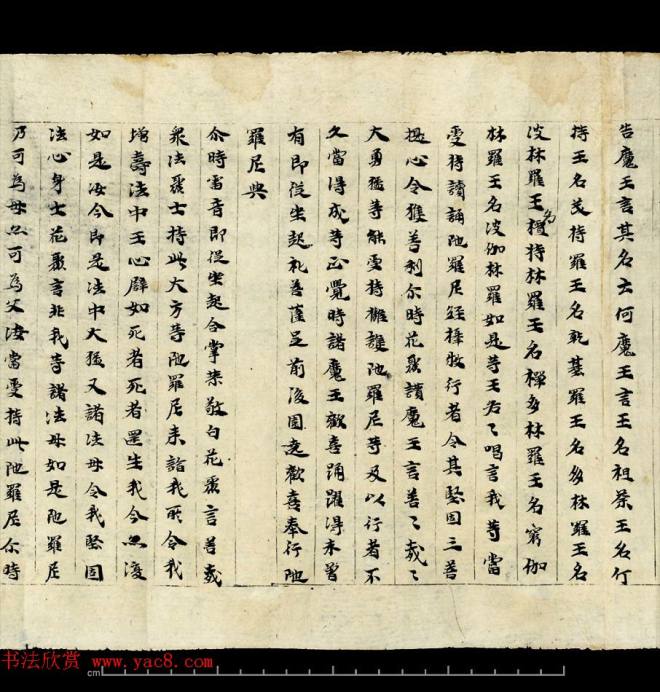 告魔王言其名云何魔王言王名祖荼王名斤
持王名茂持羅王名乾基羅王名多林羅王名
波林羅王名檀持林羅王名禪多林羅王名窮伽
林羅王名波伽林羅如是等王各〻唱言我等當
受持讀誦陀羅尼經擁牧行者令其堅固三菩
提心令獲善利尒時花聚讚魔王言善〻哉〻
大勇猛等能受持擁護陀羅尼等及以行者不
久當得成等正覺時諸魔王歡喜踊躍得未曾
有即從坐起礼菩薩足前後圍遶歡喜奉行陀
羅尼典
尒時雷音即從坐起合掌恭敬白花聚言善哉
衆法聚士持此大方等陀羅尼來詣我所令我
增壽法中王心譬如死者死者還生我今無復
如是汝今即是法中大猛又諸法母令我堅固
法心身士花聚言非我等諸法母如是陀羅尼
乃可為母亦可為父汝當受持此陀羅尼尒時
书法欣赏 www.yac8.com
cm